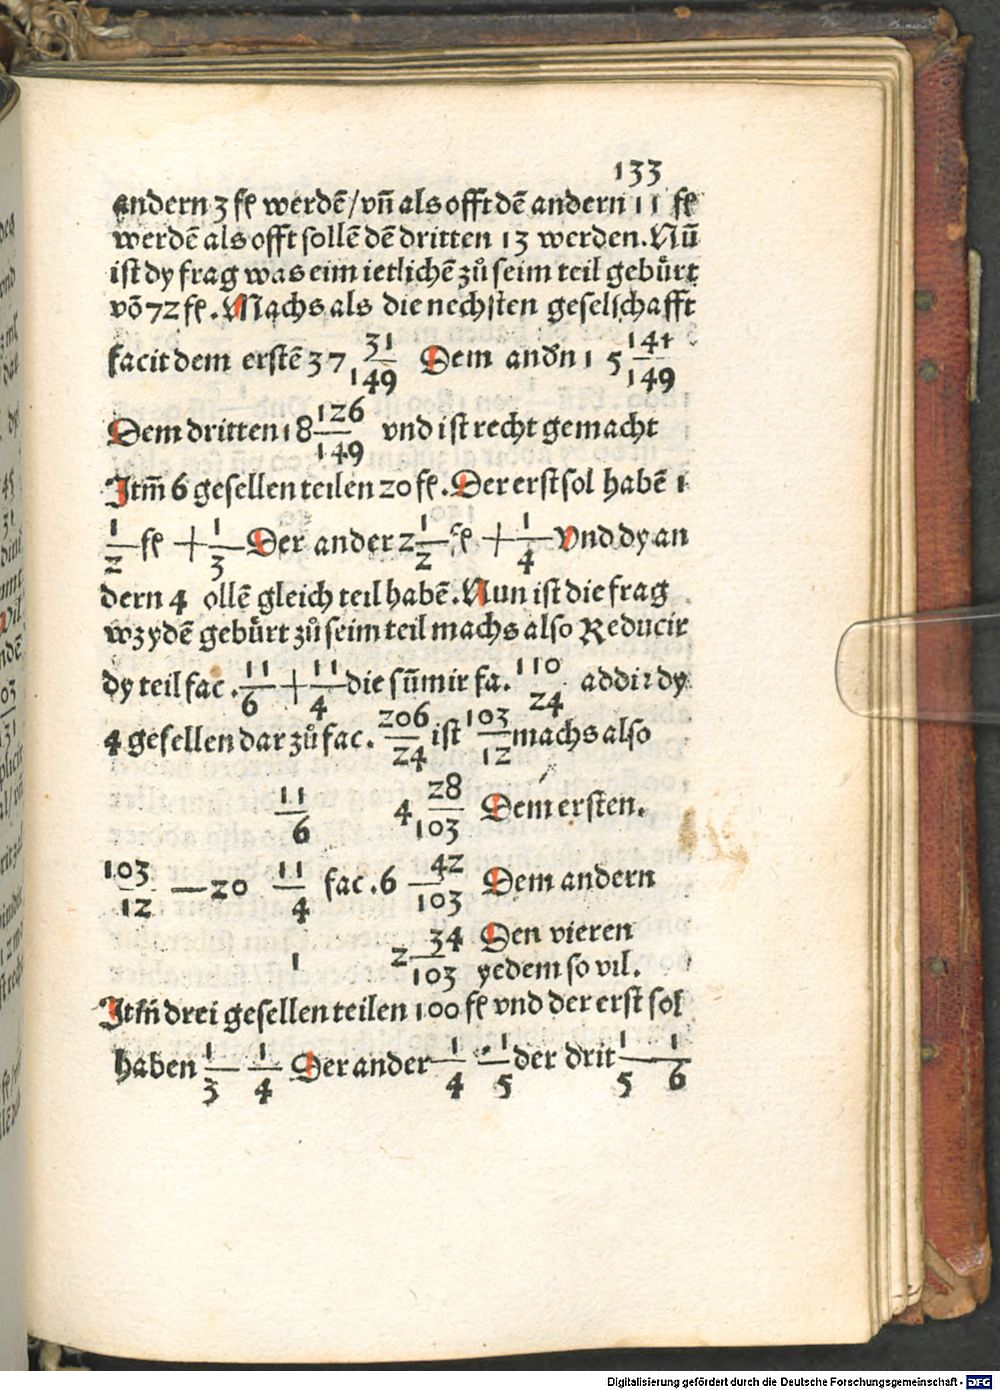 133
andern 3 fl werdē/vñ als offt dē andern 11 fl
werdē als offt sollē dē dritten 13 werden. Nū
ist dy frag was eim ietlichē zů seim teil gebürt
võ 72 fl. Machs als die nechsten geselschafft
facit dem erstē 37 31/149 Dem andn̄ 15 141/149
Dem dritten 18 126/149 vnd ist recht gemacht
Itm̄ 6 gesellen teilen 20 fl. Der erst sol habē 1
1/2 fl + 1/3 Der ander 2 1/2 fl + 1/4 Vnd dy an
dern 4 ollē gleich teil habē. Nun ist die frag
wz ydē gebürt zů seim teil machs also Reducir
dy teil fac. 11/6 + 11/4 die sūmir fa. 110/24 addir dy
4 gesellen darzů fac. 206/24 ist 103/12 machs also
11/6 4 28/103 Dem ersten.
103/12 — 20 11/4 fac. 6 42/103 Dem andern
1 2 34/103 Den vieren
yedem so vil.
Itm̄ drei gesellen teilen 100 fl vnd der erst sol
haben 1/3 — 1/4 Der ander 1/4 — 1/5 der drit 1/5 — 1/6
Digitalisierung gefördert durch die Deutsche Forschungsgemeinschaft - DFG